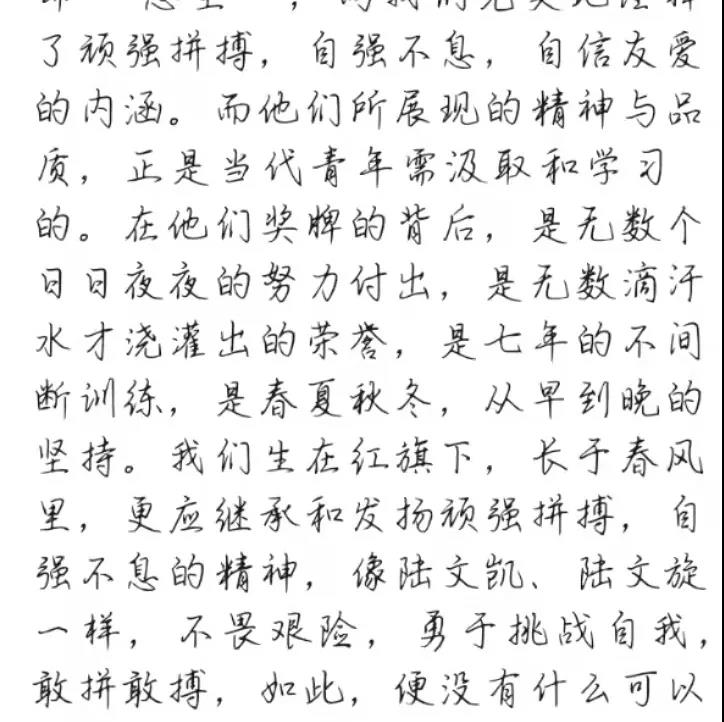 了顽强拼搏，自强不息，自信友爱
的内涵。而他们所展现的精神与品
质，正是当代青年需汲取和学习
的。在他们奖牌的背后，是无数个
日日夜夜的努力付出，是无数滴汗
水才浇灌出的荣誉，是七年的不间
断训练，是春夏秋冬，从早到晚的
坚持。我们生在红旗下，长于春风
里，更应继承和发扬顽强拼搏，自
强不息的精神，像陆文凯、陆文旋
一样，不畏艰险，勇于挑战自我，
敢拼敢搏，如此，便没有什么可以